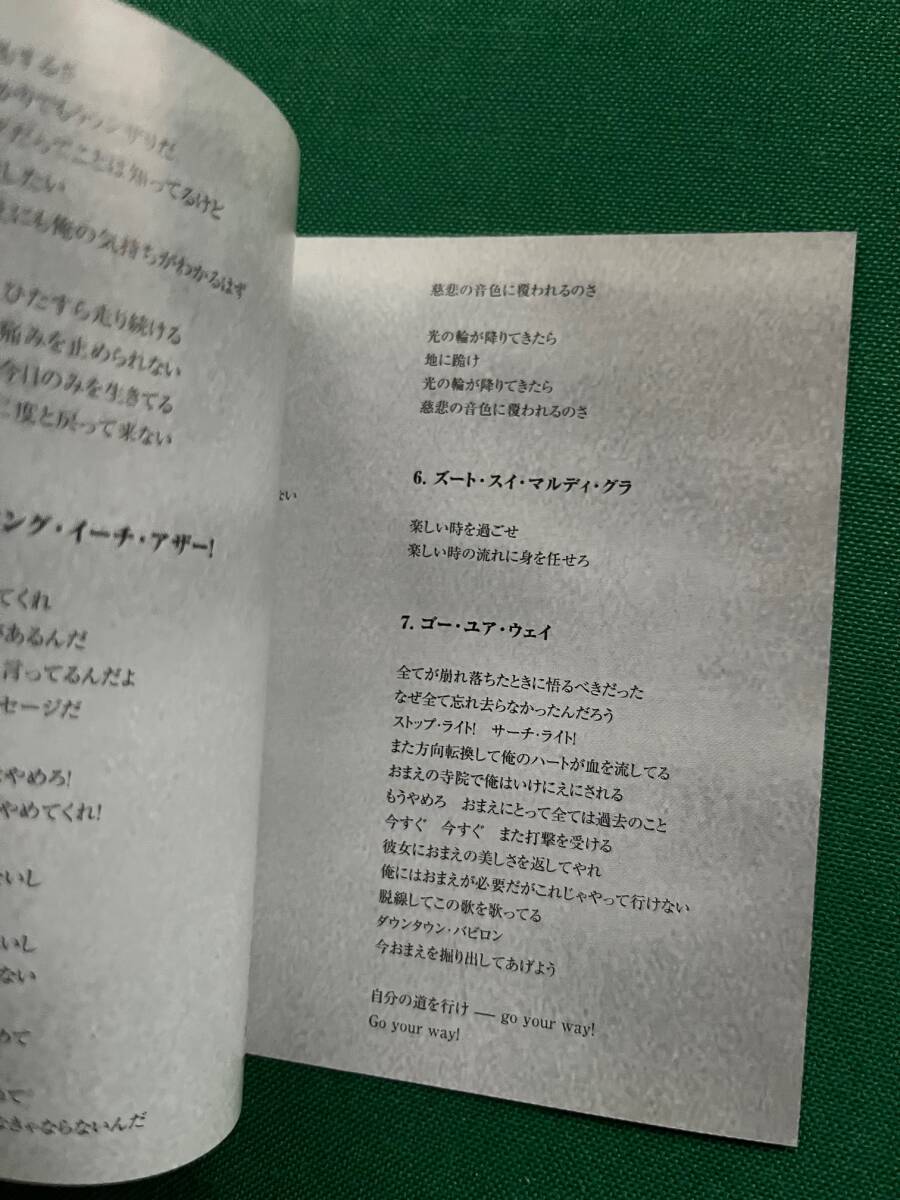 でもウンザリだ
だってことは知ってるけど
したい
にも俺の気持ちがわかるはず
ひたすら走り続ける
痛みを止められない
今日のみを生きてる
二度と戻って来ない
ング・イーチ・アザー!
てくれ
があるんだ
言ってるんだよ
セージだ
やめろ!
やめてくれ!
ないし
ないし
ない
めて
めて
なきゃならないんだ
ない
慈悲の音色に覆われるのさ
光の輪が降りてきたら
地に跪け
光の輪が降りてきたら
慈悲の音色に覆われるのさ
6. ズート・スイ・マルディ・グラ
楽しい時を過ごせ
楽しい時の流れに身を任せろ
7. ゴー・ユア・ウェイ
全てが崩れ落ちたときに悟るべきだった
なぜ全て忘れ去らなかったんだろう
ストップ・ライト! サーチ・ライト!
また方向転換して俺のハートが血を流してる
おまえの寺院で俺はいけにえにされる
もうやめろ おまえにとって全ては過去のこと
今すぐ 今すぐ また打撃を受ける
彼女におまえの美しさを返してやれ
俺にはおまえが必要だがこれじゃやって行けない
脱線してこの歌を歌ってる
ダウンタウン・バビロン
今おまえを掘り出してあげよう
自分の道を行け — go your way!
Go your way!